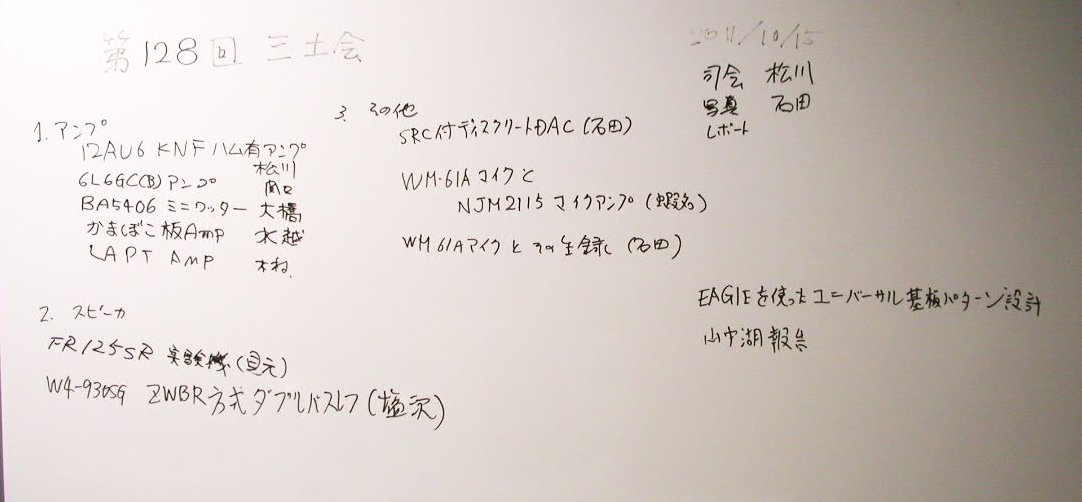 第128回 三土会
2011/10/15
司会 松川
写真 石田
レポート
1. アンプ
12AU6 KNF ハム有アンプ
松川
6L6GC(B)アンプ 関口
BA5406 ミニワッター 大橋
かまぼこ板Amp 水越
LAPT AMP
2. スピーカ
FR125SR 実験機(貝元)
W4-930SG ZWBR方式ダブルバスレフ(塩沢)
3. その他
SRC付ディスクリートDAC(石田)
WM-61Aマイクと
NJM2115 マイクアンプ(蝦名)
WM61Aマイクとその生録し(石田)
EAGlEを使ったユニバーサル基板パターン設計
山中湖報告